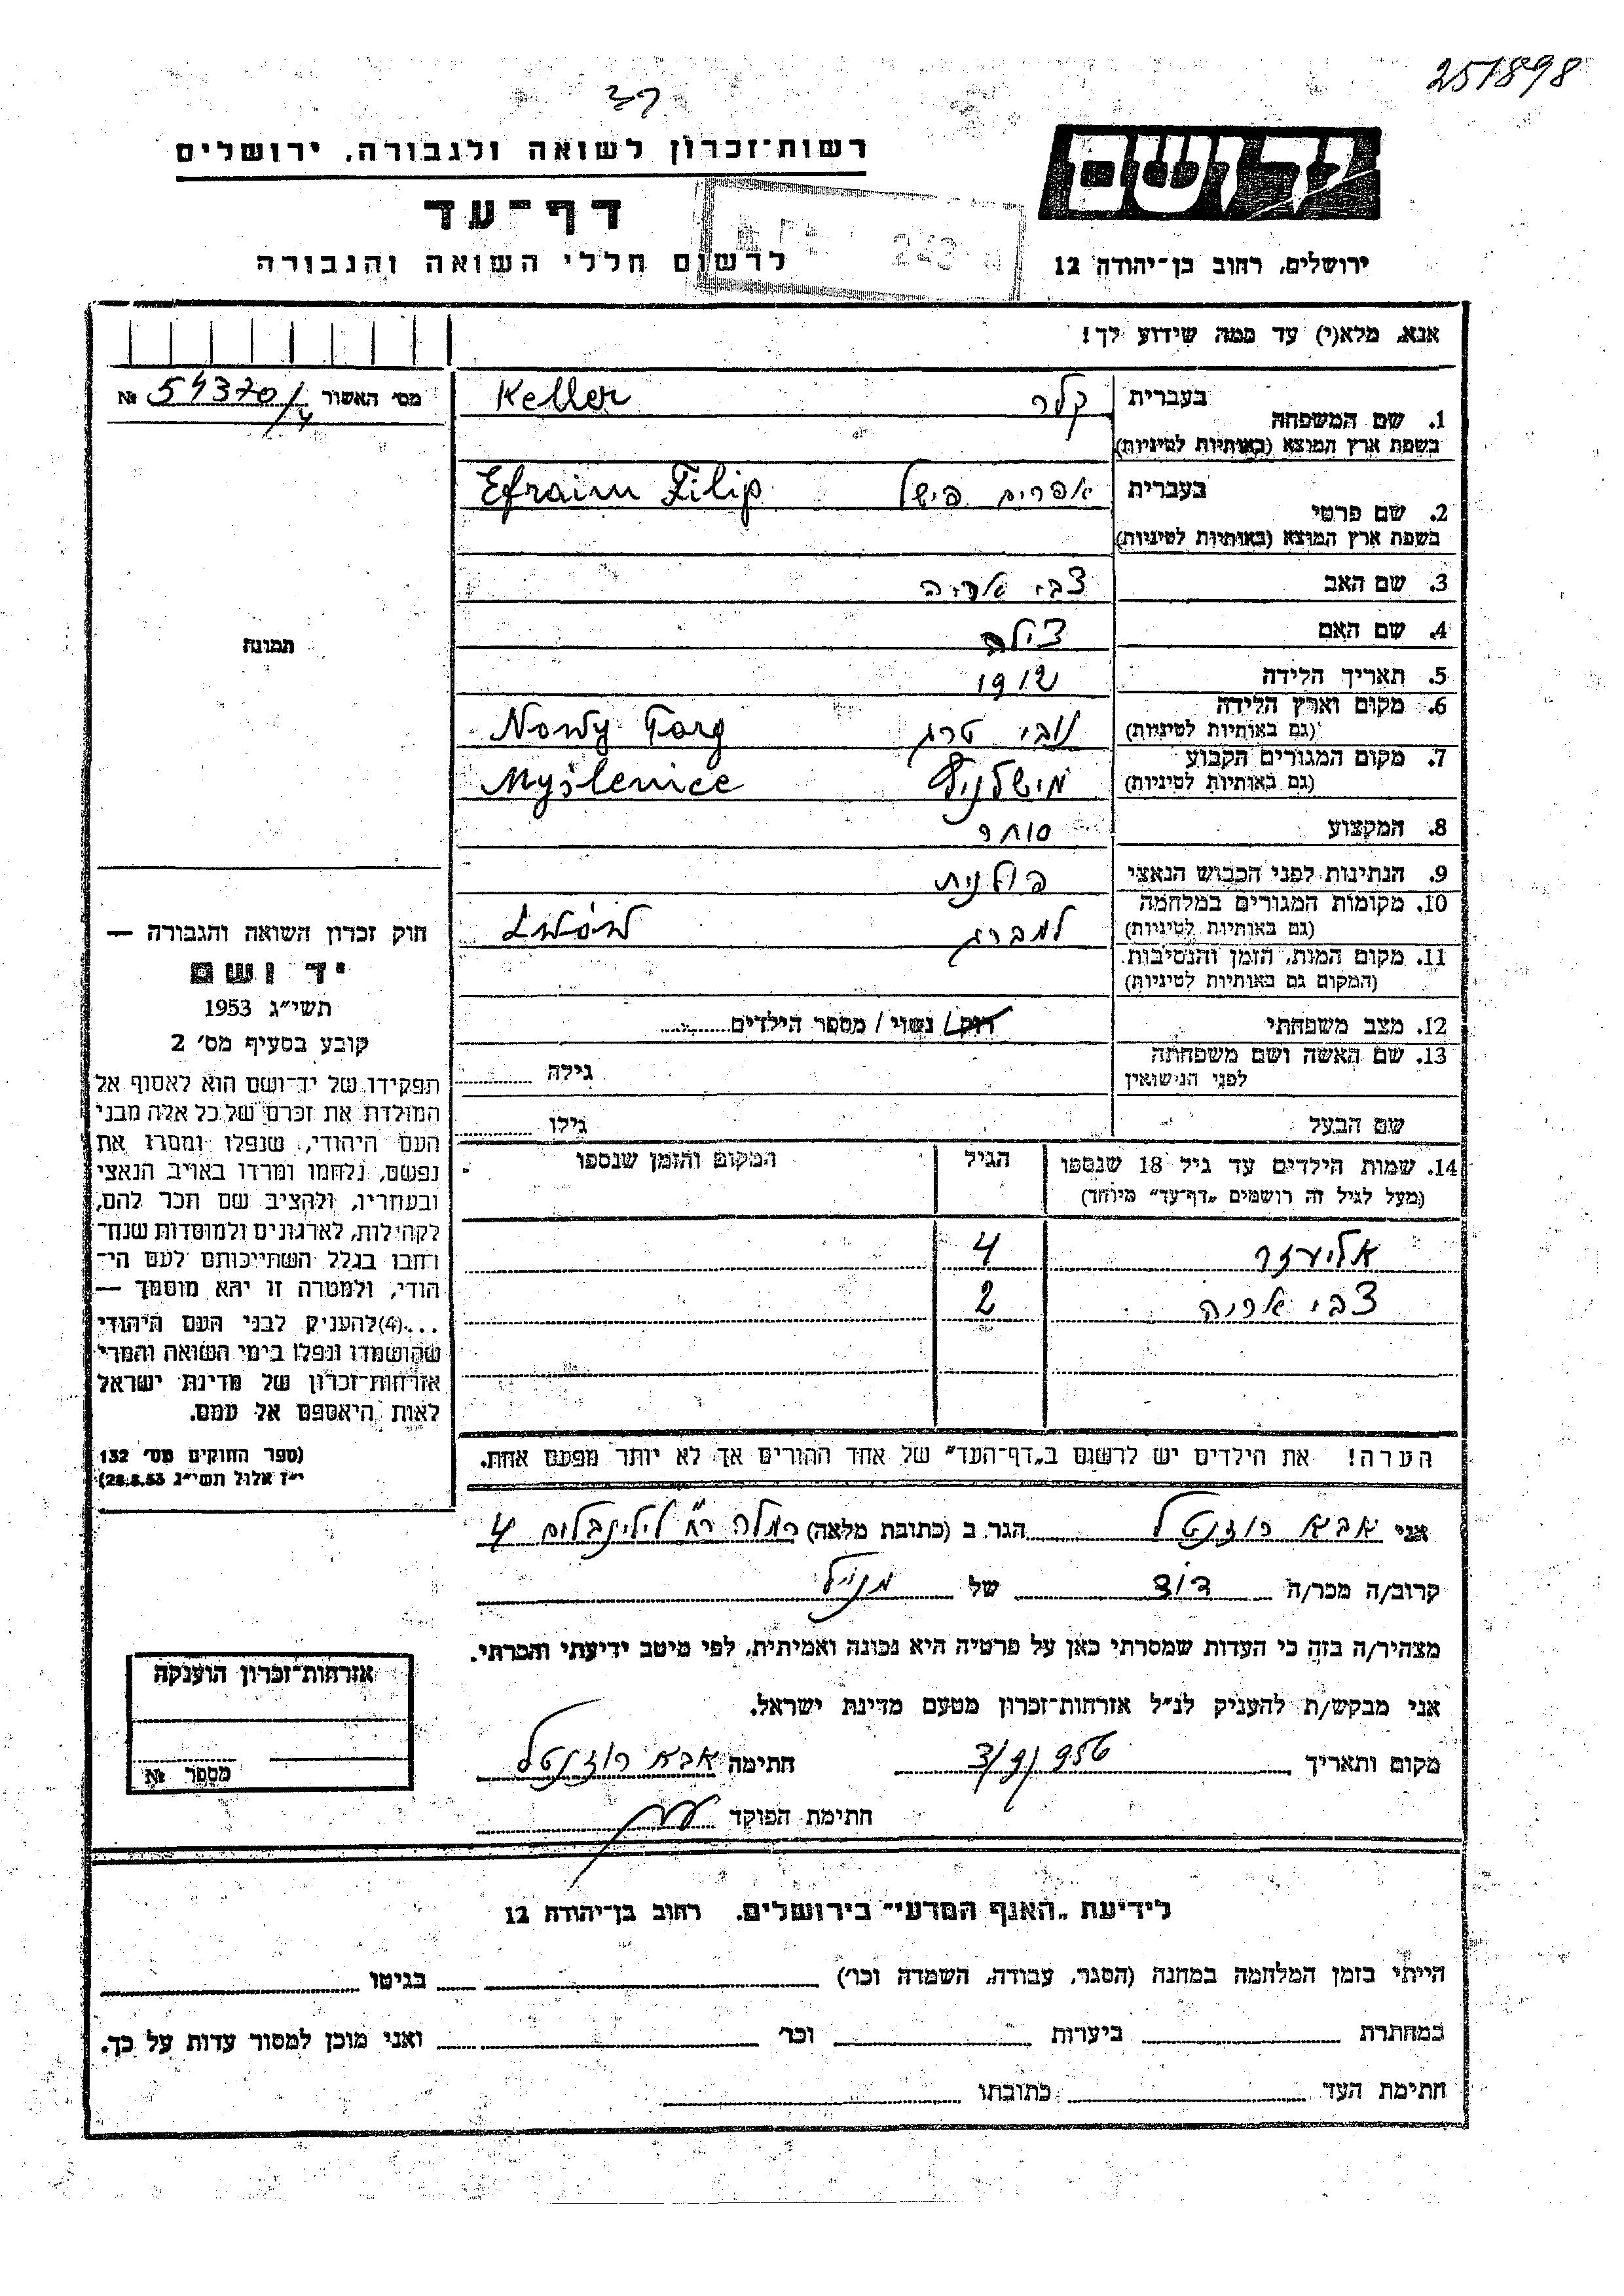 251898
רשות־זכרון לשואה ולגבורה, ירושלים
יד ושם
דף־עד
לרשום חללי השואה והגבורה
ירושלים, רחוב בן־יהודה 12
אנא, מלא(י) עד כמה שידוע לך!
מס׳ האשור № 54370/4
1. שם המשפחה
בעברית קלר Keller
בשפת ארץ המוצא (באותיות לטיניות)
2. שם פרטי
בעברית אפרים פישל Efraim Filip
בשפת ארץ המוצא (באותיות לטיניות)
3. שם האב צבי אריה
4. שם האם צילה
5. תאריך הלידה 1912
6. מקום וארץ הלידה נובי טרג Nowy Targ
(גם באותיות לטיניות)
7. מקום המגורים הקבוע מישלניץ Myślenice
(גם באותיות לטיניות)
8. המקצוע סוחר
9. הנתינות לפני הכבוש הנאצי פולנית
10. מקומות המגורים במלחמה למברג
(גם באותיות לטיניות)
11. מקום המות, הזמן והנסיבות
(המקום גם באותיות לטיניות)
12. מצב משפחתי רוק / נשוי / מספר הילדים
13. שם האשה ושם משפחתה
לפני הנישואין
גילה
שם הבעל גילו
14. שמות הילדים עד גיל 18 שנספו הגיל המקום והזמן שנספו
(מעל לגיל זה רושמים „דף־עד״ מיוחד)
אליעזר 4
צבי אריה 2
הערה! את הילדים יש לרשום ב„דף־העד״ של אחד ההורים אך לא יותר מפעם אחת.
תמונה
חוק זכרון השואה והגבורה —
יד ושם
תשי״ג 1953
קובע בסעיף מס׳ 2
תפקידו של יד־ושם הוא לאסוף אל
המולדת את זכרם של כל אלה מבני
העם היהודי, שנפלו ומסרו את
נפשם, נלחמו ומרדו באויב הנאצי
ובעוזריו, ולהציב שם וזכר להם,
לקהילות, לארגונים ולמוסדות שנח־
רבו בגלל השתייכותם לעם הי־
הודי, ולמטרה זו יהא מוסמך —
...(4)להעניק לבני העם היהודי
שהושמדו ונפלו בימי השואה והמרי
אזרחות־זכרון של מדינת ישראל
לאות היאספם אל עמם.
(ספר החוקים מס׳ 132
י״ז אלול תשי״ג 28.8.53)
אני אבא רוזנטל הגר ב (כתובת מלאה) רמלה רח׳ לילינבלום 4
קרוב/ה מכר/ה דוד של
מצהיר/ה בזה כי העדות שמסרתי כאן על פרטיה היא נכונה ואמיתית, לפי מיטב ידיעתי והכרתי.
אני מבקש/ת להעניק לנ״ל אזרחות־זכרון מטעם מדינת ישראל.
מקום ותאריך 3/9/956 חתימה אבא רוזנטל
חתימת הפוקד
אזרחות־זכרון הוענקה
מספר №
לידיעת „האגף המדעי״ בירושלים, רחוב בן־יהודה 12
הייתי בזמן המלחמה במחנה (הסגר, עבודה, השמדה וכו׳) בגיטו
במחתרת ביערות וכו׳ ואני מוכן למסור עדות על כך.
חתימת העד כתובתו